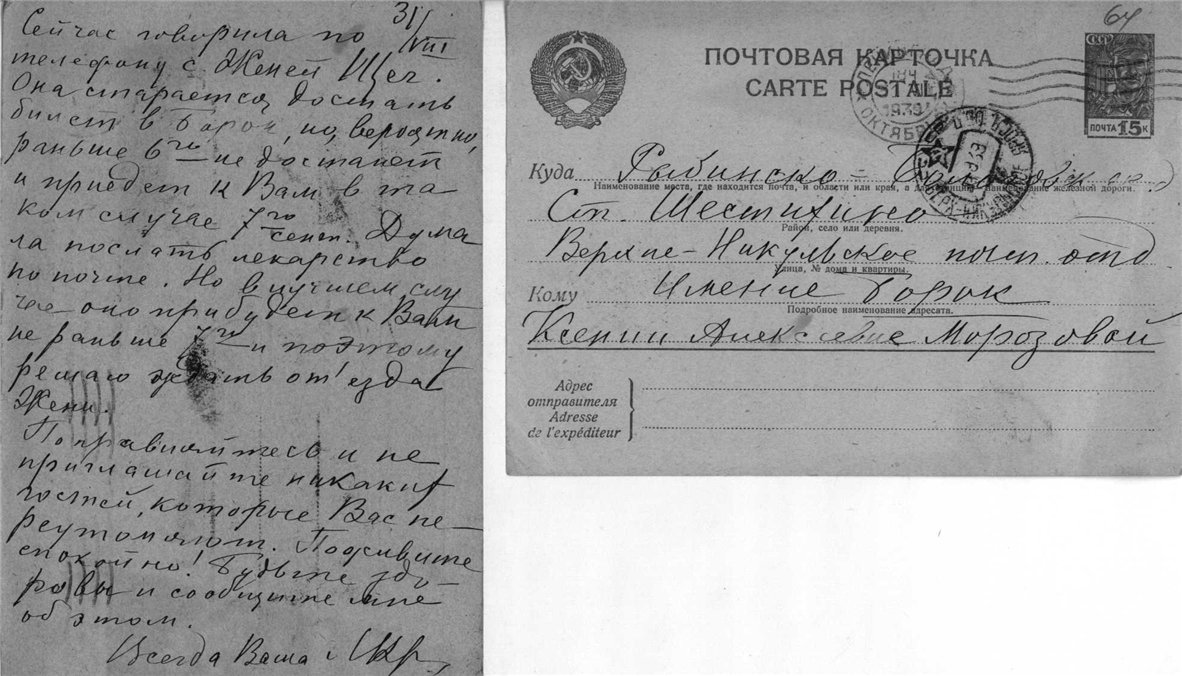 31/VIII
Сейчас говорила по
телефону с Женей Щег.
Она старается достать
билет в Борок, но, вероятно,
раньше 6го не достанет
и приедет к Вам в та
ком случае 7го сент. Дума
ла послать лекарство
по почте. Но в лучшем слу
чае оно прибудет к Вам
не раньше 7го и поэтому
решаю ждать от'езда
Жени.
Поправляйтесь и не
приглашайте никаких
гостей, которые Вас пе-
реутомляют. Поживите
спокойно! Будьте здо-
ровы и сообщите мне
об этом.
Всегда Ваша
64
ПОЧТОВАЯ КАРТОЧКА
CARTE POSTALE
СССР
ПОЧТА 15 К
1939
ОКТЯБР
Куда Рыбинско-
Наименование места, где находится почта, и области или края, а для станции наименование железной дороги.
Ст. Шестихино
Район, село или деревня.
Верхне-Никульское почт. отд
Улица, № дома и квартиры.
Кому Имение Борок
Подробное наименование адресата.
Ксении Алексеевне Морозовой
Адрес
отправителя
Adresse
de l'expéditeur